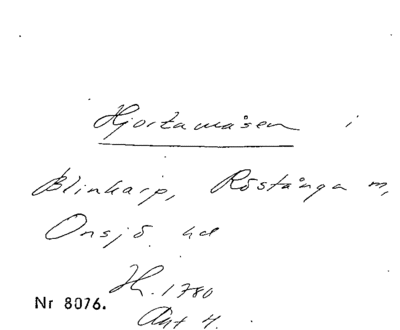 Hjortamåsen i
Blinkarp, Röstånga m,
Onsjö hd
Hr. 1780
Nr 8076.
Akt 4.